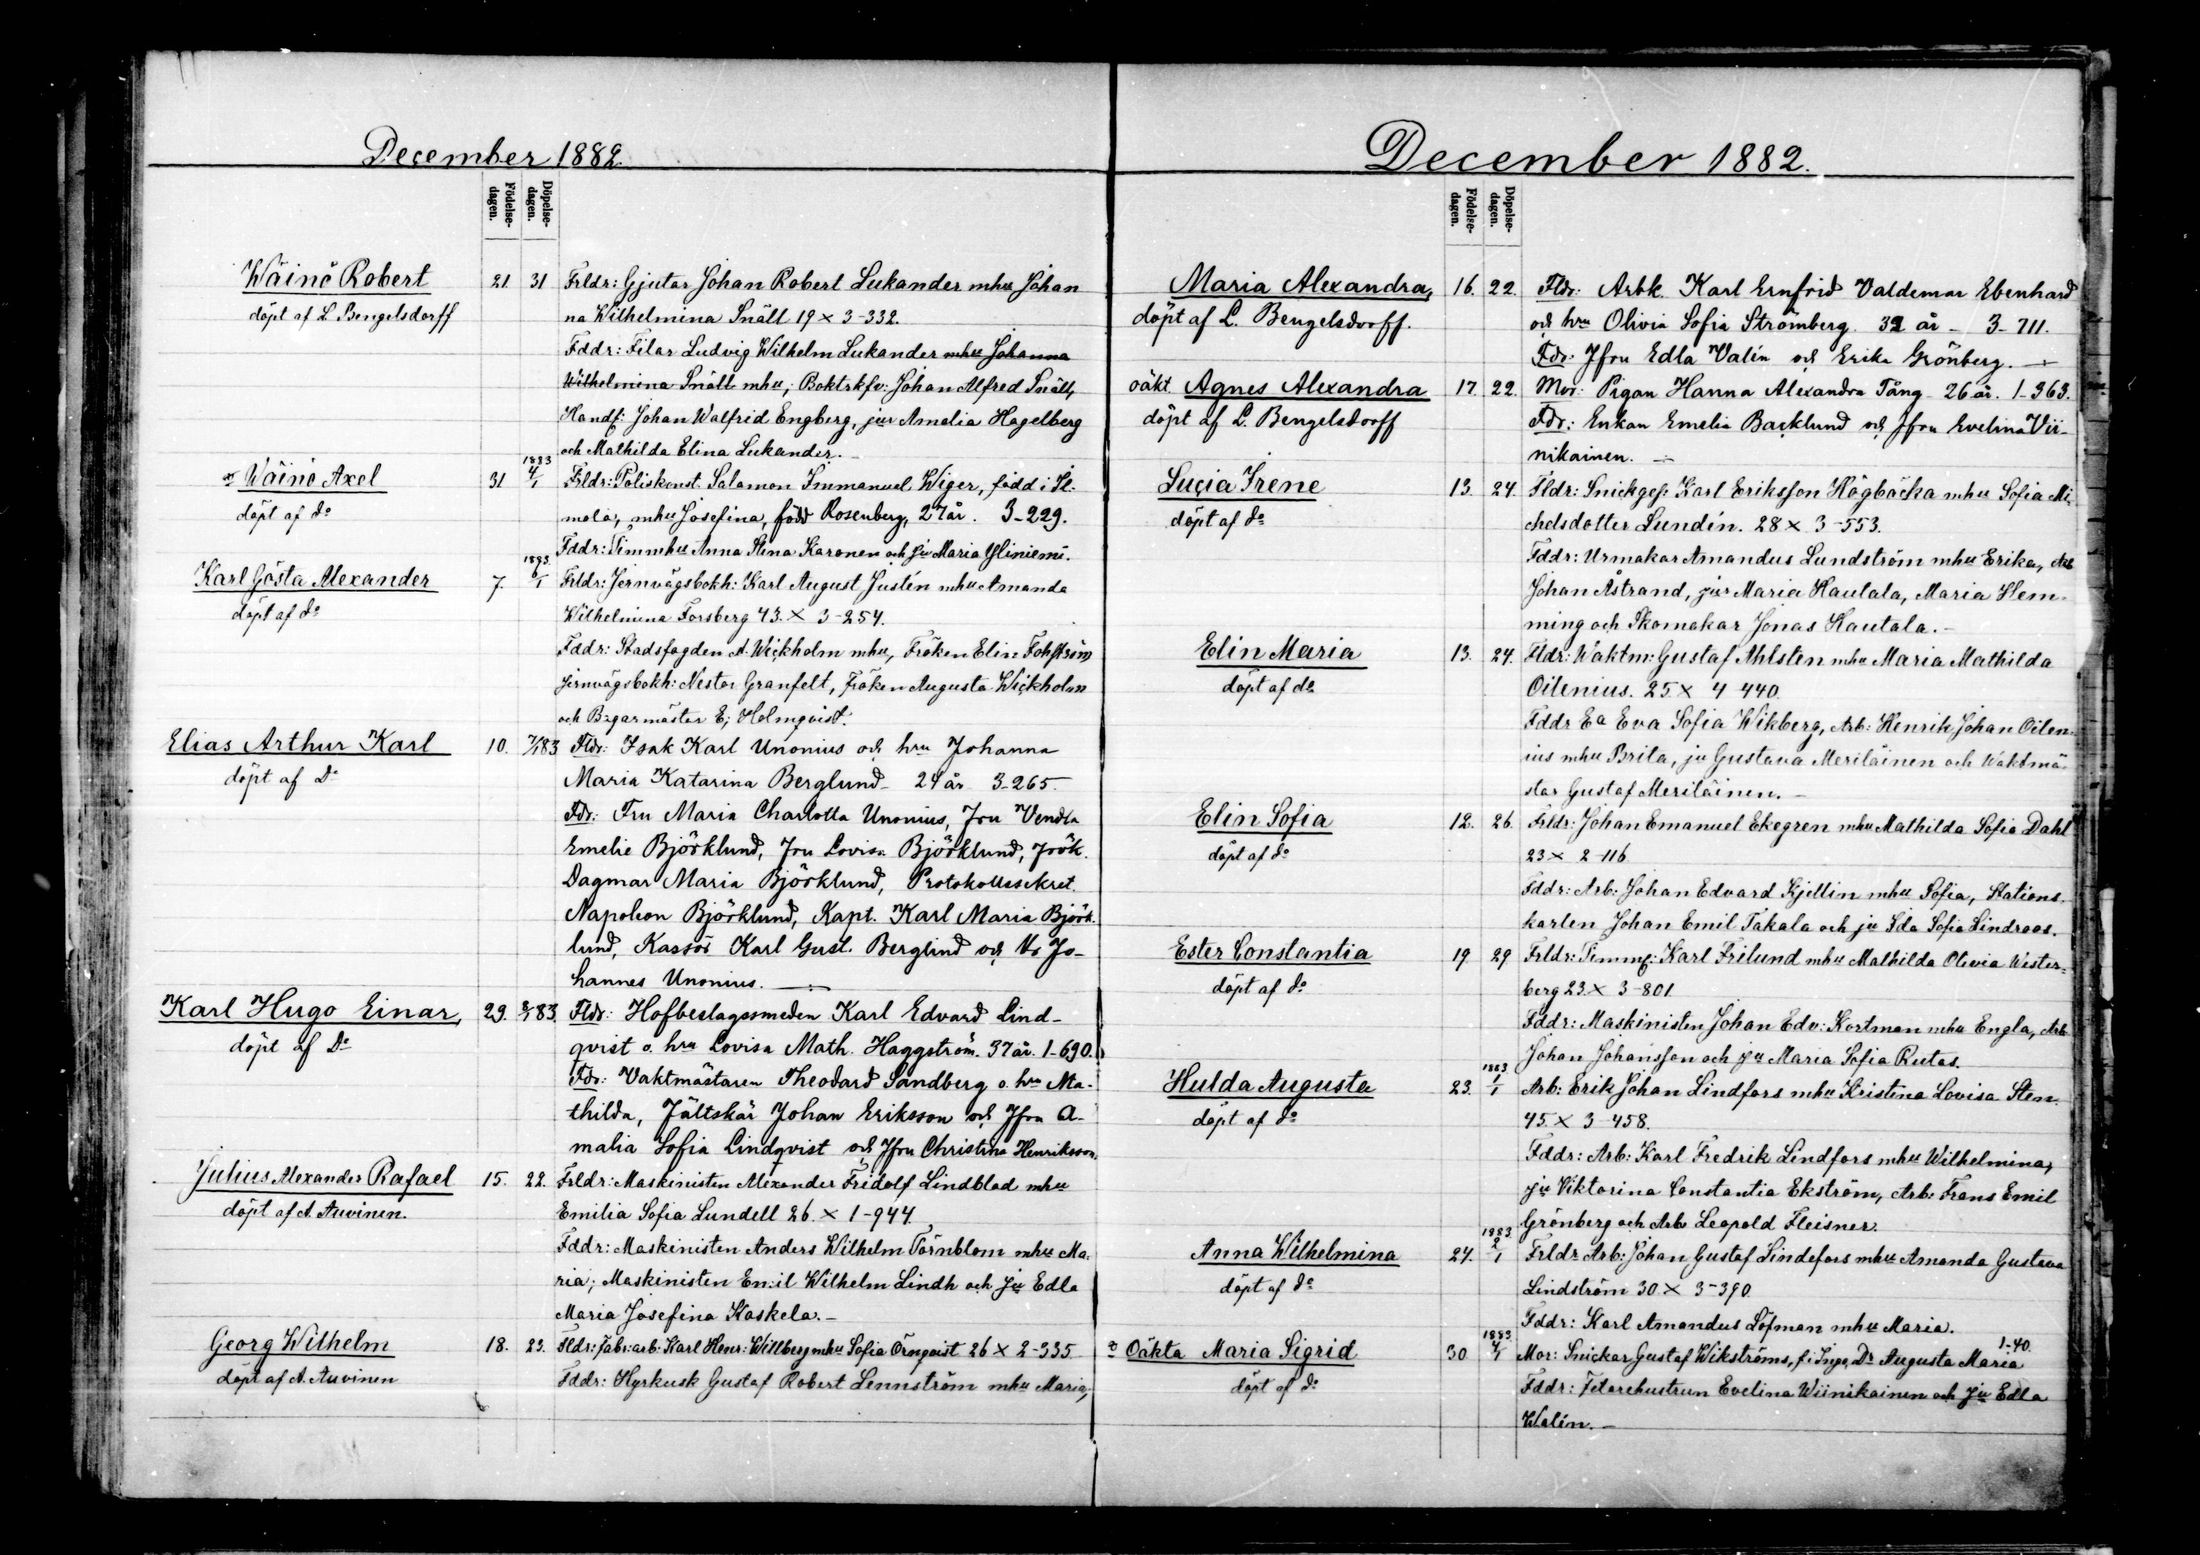 December 1882.
Födelse-
dagen.
Döpelse-
dagen.
Wäinö Robert
döpt af L. Bengelsdorff
21. 31 Frldr: Gjutar Johan Robert Lukander mhu Johan
na Wilhelmina Snäll 19 × 3-332.
Fddr: Filar Ludvig Wilhelm Lukander mhu Johanna
Wilhelmina Snäll mhu; Boktrkfv: Johan Alfred Snäll,
Handf: Johan Walfrid Engberg, jur Amalia Hagelberg
och Mathilda Elina Lukander.
Wäinö Axel
döpt af do
31 1883 4/1 Frldr: Poliskonst. Salomon Immanuel Wiger, född i Il.
mola, mhu Josefina, född Rosenberg, 27 år. 3-229.
Fddr: Timmhu Anna Stina Karonen och ju Maria Yliniemi.
Karl Gösta Alexander
döpt af do
7. 1883 6/1 Frldr: Jernvägsbokh: Karl August Justén mhu Amanda
Wilhelmina Forsberg 43. × 3-254.
Fddr: Stadsfogden A. Wickholm mhu, Fröken Elin Fohström
Jernvägsbokh: Nestor Granfelt, Fröken Augusta Wickholm
och Bagarmäster E. Holmqvist.
Elias Arthur Karl
döpt af Do
10. 7/1 83 Fldr: Isak Karl Unonius och hru Johanna
Maria Katarina Berglund - 24 år 3-265.
Fdr: Fru Maria Charlotta Unonius, Fru Vendla
Emelie Björklund, Fru Lovisa Björklund, Frök.
Dagmar Maria Björklund, Protokollssekret.
Napoleon Björklund, Kapt. Karl Maria Björk.
lund, Kassör Karl Gust. Berglund och Hr Jo-
hannes Unonius.
Karl Hugo Einar,
döpt af Do
29. 83. Fldr: Hofbeslagssmeden Karl Edvard Lind-
qvist o. hru Lovisa Math. Haggström. 37 år. 1-690.
Fdr: Vaktmästaren Theodard Sandberg o. hru Ma-
thilda, Fältskär Johan Eriksson och Jfru A-
malia Sofia Lindqvist och Jfru Christina Henriksson.
Julius Alexander Rafael
döpt af A. Auvinen.
15. 22. Frldr: Maskinisten Alexander Fridolf Lindblad mhu
Emilia Sofia Lundell 26. × 1-944.
Fddr: Maskinisten Anders Wilhelm Törnblom mhu Ma-
ria; Maskinisten Emil Wilhelm Lindh och ju Edla
Maria Josefina Koskela.-
Georg Wilhelm
döpt af A. Auvinen
18. 23. Fldr: Fabr: arb: Karl Henr: Willberg mhu Sofia Örnqvist 26 × 2-335.
Fddr: Hyrkusk Gustaf Robert Lennström mhu Maria,
December 1882.
Födelse-
dagen.
Döpelse-
dagen.
Maria Alexandra,
döpt af L. Bengelsdorff.
16. 22. Fldr: Arbk. Karl Ernfrid Valdemar Ebenhard
och hru Olivia Sofia Strömberg. 32 år - 3-711.
Fdr: Jfru Edla Valin och Erika Grönberg.
oäkt. Agnes Alexandra
döpt af L. Bengelsdorff
17. 22. Mor: Pigan Hanna Alexandra Tång 26 år. 1-363.
Fdr: Enkan Emelia Backlund och Jfru Evelina Vii-
nikainen.
Lucia Irene
döpt af do
13. 24. Fldr: Snickges: Karl Eriksson Högbacka mhu Sofia Mi-
chelsdotter Lundin. 28 × 3-553.
Fddr: Urmakar Amandus Lundström mhu Erika, Arb
Johan Åstrand, jur Maria Hautala, Maria Hem-
ming och Skomakar Jonas Hautala.-
Elin Maria
döpt af do
13. 24. Fldr: Waktm: Gustaf Ahlsten mhu Maria Mathilda
Oilenius. 25 × 4-440.
Fddr Ea Eva Sofia Wikberg, Arb: Henrik Johan Oilen-
ius mhu Brita, ju Gustava Meriläinen och Waktmä-
star Gustaf Meriläinen.-
Elin Sofia
döpt af do
12. 26. Frldr: Johan Emanuel Ekegren mhu Mathilda Sofia Dahl
23 × 2-116
Fddr: Arb: Johan Edvard Kjellin mhu Sofia, Stations
karlen Johan Emil Takala och ju Ida Sofia Lindroos.
Ester Constantia
döpt af do
19. 29 Frldr: Timmf: Karl Frilund mhu Mathilda Olivia Wester-
berg 23. × 3-801
Fddr: Maskinisten Johan Edv: Kortman mhu Engla, Arb
Johan Johansson och ju Maria Sofia Rutas.
Hulda Augusta
döpt af do
23. 1883 1/1 Arb: Erik Johan Lindfors mhu Kristina Lovisa Sten
45 × 3-458.
Fddr: Arb: Karl Fredrik Lindfors mhu Wilhelmina,
ju Viktorina Constantia Ekström, Arb: Frans Emil
Grönberg och Arb Leopold Fleisner.
Anna Wilhelmina
döpt af do
24. 1883 2/1 Frldr Arb: Johan Gustaf Lindefors mhu Amanda Gustava
Lindström 30. × 3-390.
Fddr: Karl Amandus Löfman mhu Maria.
Oäkta Maria Sigrid
döpt af do
30 1883 4/1 Mor: Snickar Gustaf Wikströms, f. i Ingo, Dr Augusta Maria 1-40.
Fddr: Filarehustrun Evelina Wiinikainen och ju Edla
Walin.-